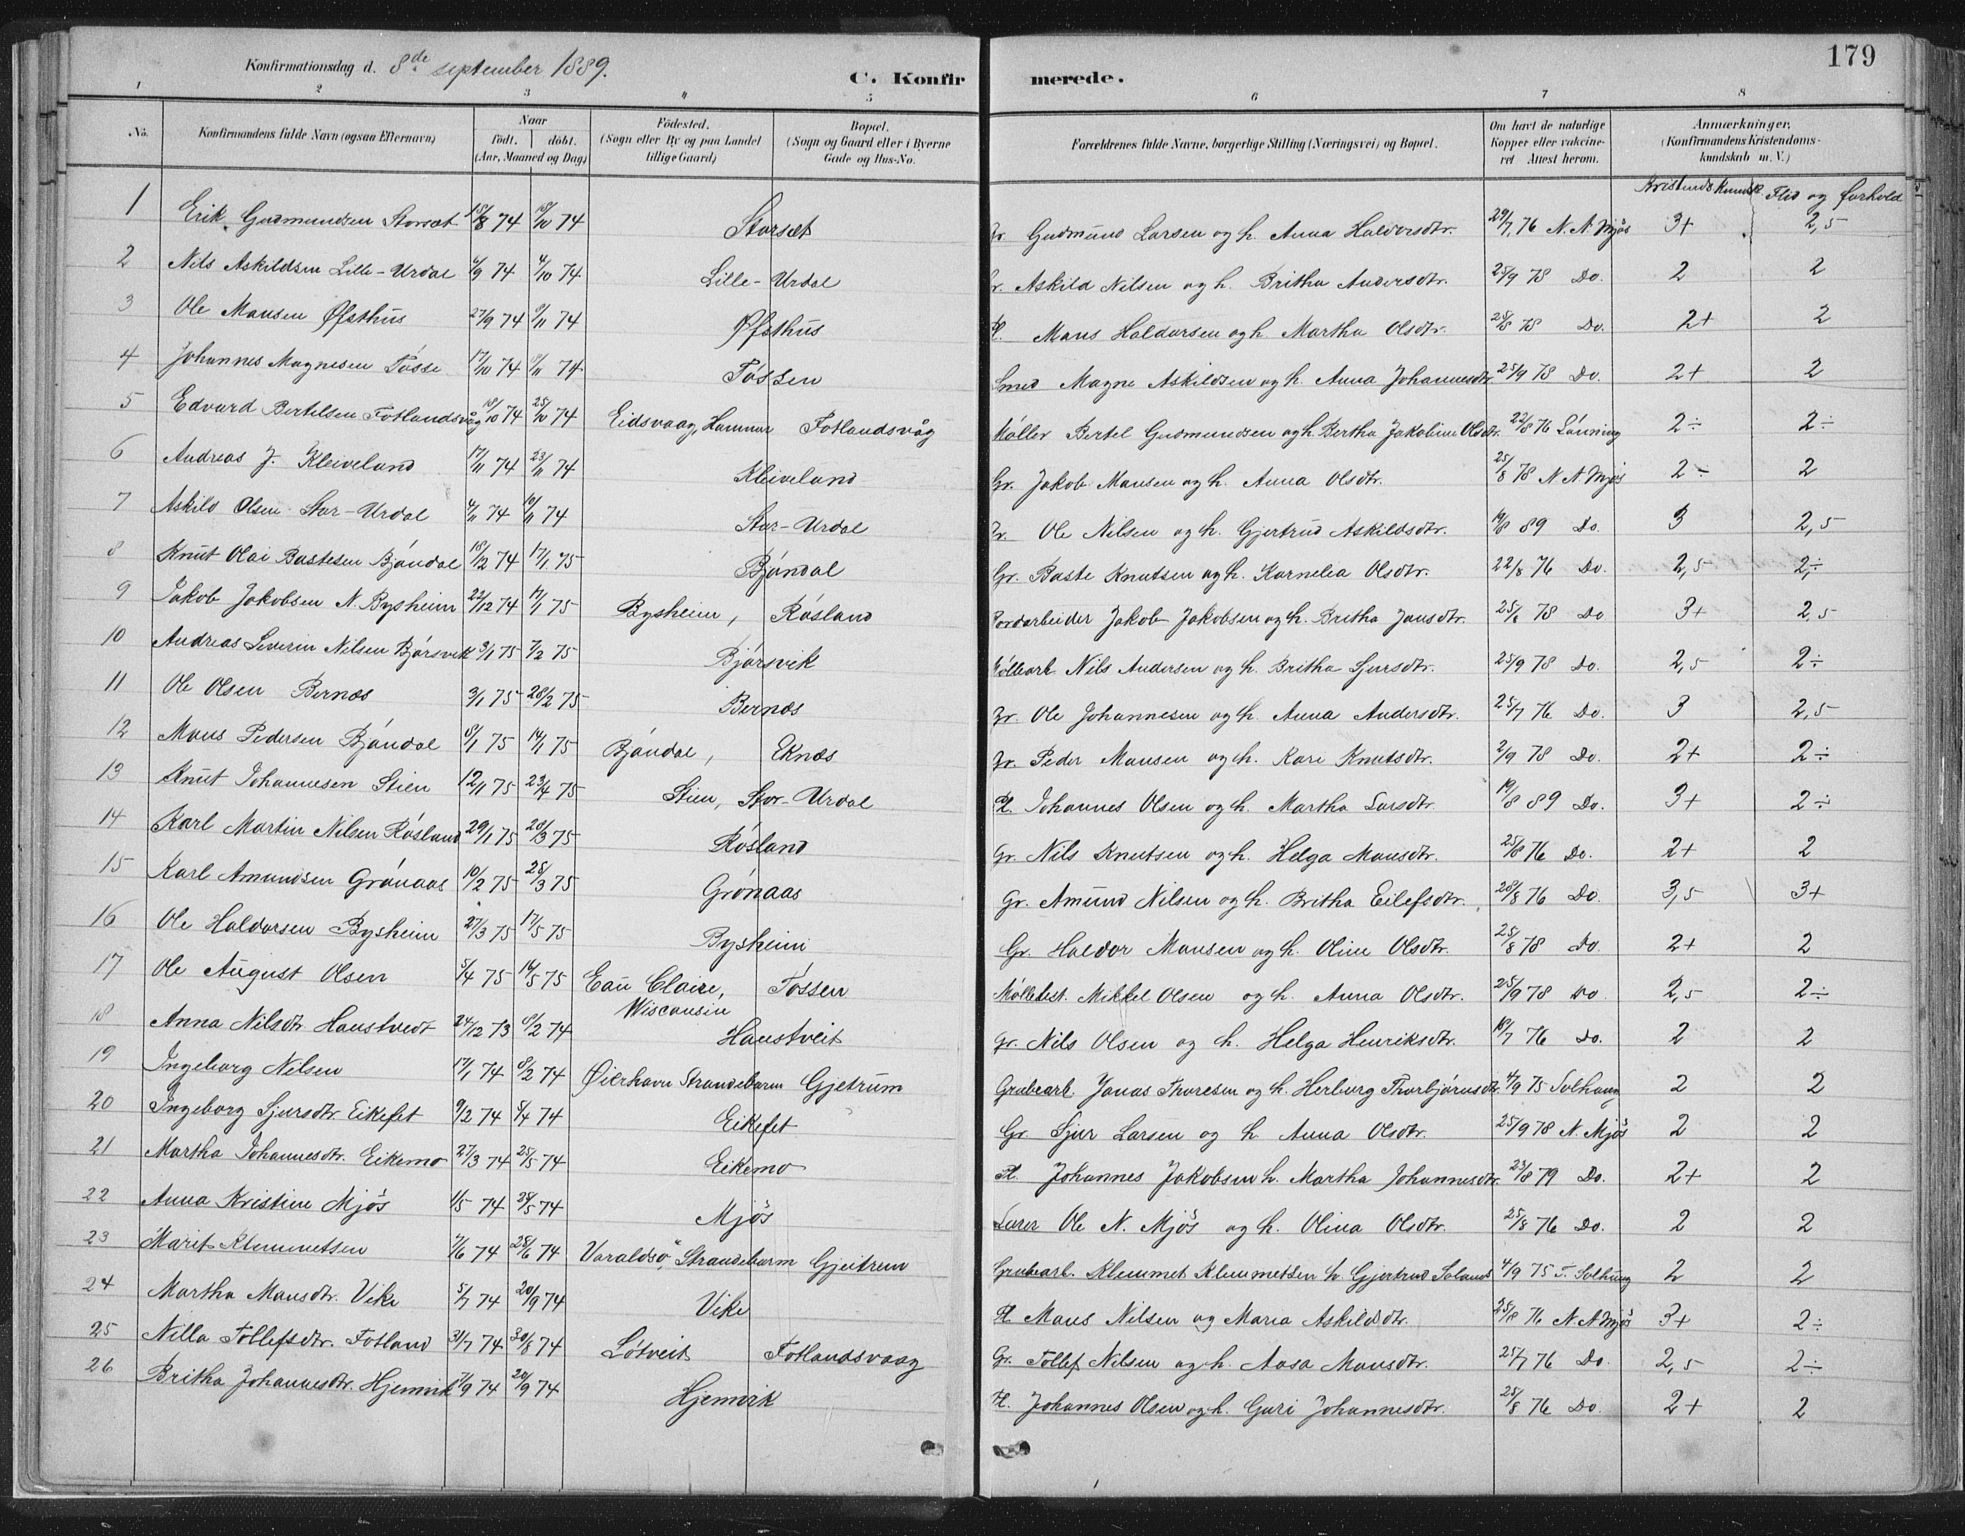 179
Konfirmationsdag d. 8de september 1889.
C. Konfirmerede.
1 2 3 4 5 6 7 8
No. Konfirmandens fulde Navn (ogsaa Efternavn) Naar født. døbt. (Aar, Maaned og Dag) Fødested. (Sogn eller By og paa Landet tillige Gaard) Bopæl. (Sogn og Gaard eller i Byerne Gade og Hus-No. Forældrenes fulde Navne, borgerlige Stilling (Næringsvei) og Bopæl. Om havt de naturlige Kopper eller vakcineret Attest herom. Anmærkninger. (Konfirmandens Kristendomskundskab m. V.)
Flid og Forhold
1 Erik Gudmundsen Storsæt 15/8 74 18/10 74 Storsæt Gr. Gudmund Larsen og h. Anna Haldorsdtr. 29/7 76 N. A. Mjös 3+ 2,5
2 Nils Askildsen Lille-Urdal 4/9 74 4/10 74 Lille-Urdal Gr. Askild Nilsen og h. Britha Andersdtr. 25/9 78 Do. 2 2
3 Ole Mansen Øfsthus 27/9 74 8/11 74 Øfsthus Pl. Mons Haldorsen og h. Martha Olsdtr. 25/8 78 Do. 2+ 2
4 Johannes Magnesen Tösse 17/10 74 /11 74 Tössen Smed Magne Askildsen og h. Anna Johannesdtr. 25/9 78 Do. 2+ 2
5 Edvard Bertelsen Fotlandsvåg 10/10 74 25/10 74 Eidsvaag, Hammer Fotlandsvåg Møller Bertel Gudmundsen og h. Bertha Jakobine Olsdtr. 22/8 76 Lönning 2÷ 2÷
6 Andreas J. Kleiveland 17/11 74 23/11 74 Kleiveland Gr. Jakob Mansen og h. Anna Olsdtr. 25/8 78 N A Mjös 2- 2
7 Askild Olsen Stor-Urdal 4/11 74 10/11 74 Stor-Urdal Gr. Ole Nilsen og h. Gjertrud Askildsdtr. 19/8 89 Do. 3 2,5
8 Knut Olai Bastesen Bjöndal 18/12 74 17/1 75 Bjöndal Gr. Baste Knutsen og h. Karnelia Olsdtr. 22/8 76 Do. 2,5 2÷
9 Jakob Jakobsen N. Bysheim 22/12 74 17/1 75 Bysheim, Rösland Jordarbeider Jakob Jakobsen og h. Britha Jansdtr. 25/8 78 Do 3+ 2,5
10 Andreas Severin Nilsen Bjørsvik 3/1 75 7/2 75 Bjørsvik Møllearb. Nils Andersen og h. Britha Sjursdtr. 25/9 78 Do. 2,5 2÷
11 Ole Olsen Bernes 3/1 75 28/2 75 Bernes Gr. Ole Johannesen og h. Anna Andersdtr. 25/7 76 Do. 3 2,5
12 Mons Pedersen Bjöndal 8/1 75 14/1 75 Bjöndal, Eknæs Gr. Peder Mansen og h. Kari Knutsdtr. 2/9 78 Do. 2+ 2÷
13 Knut Johannesen Stien 12/1 75 23/4 75 Stien, Stor-Urdal Pl. Johannes Olsen og h. Martha Larsdtr. 19/8 89 Do. 3+ 2÷
14 Karl Martin Nilsen Rösland 29/1 75 28/3 75 Rösland Gr. Nils Knutsen og h. Helga Mansdtr. 25/8 76 Do. 2+ 2
15 Karl Amundsen Grönaas 10/2 75 28/3 75 Grönaas Gr. Amund Nilsen og h. Britha Eilefsdtr. 28/8 76 Do. 3,5 3+
16 Ole Haldorsen Bysheim 27/3 75 17/5 75 Bysheim Gr. Haldor Mansen og h. Oline Olsdtr. 25/8 78 Do. 2+ 2
17 Ole August Olsen 5/4 75 16/5 75 Eau Claire, Wisconsin Tössen Mikkel Olsen og h. Anna Olsdtr. 25/9 78 Do 2,5 2÷
18 Anna Nilsdtr Haustvedt 24/12 73 8/2 74 Haustveit Gr. Nils Olsen og h. Helga Henriksdtr. 18/7 76 Do. 2 2
19 Ingeborg Nelsen 17/1 74 8/2 74 Øierhavn Strandebarm Gjetrum Grubearb. Jonas Thoresen og h. Herborg Thorbjörnsdtr. 4/9 75 Solhaug 2 2
20 Ingeborg Sjursdtr. Eikefet 9/2 74 5/4 74 Eikefet Gr. Sjur Larsen og h Anna Olsdtr. 25/9 78 N. Mjös 2 2
21 Martha Johannesdtr. Eikemo 27/3 74 25/5 74 Eikemo Pl. Johannes Jakobsen h. Martha Johannesdtr. 23/8 79 Do. 2+ 2
22 Anna Kristine Mjös 1/5 74 24/5 74 Mjös Lærer Ole N. Mjös og h. Olina Olsdtr. 25/8 76 Do. 2 2
23 Marit Klemmetsen 7/6 74 28/6 74 Varaldsö, Strandebarm Gjeitrum Grubearb. Klemmet Klemmetsen h. Gjertrud 4/9 75 T. Solhaug 2 2
24 Martha Mansdtr. Vike 5/7 74 20/9 74 Vike Pl. Mons Nilsen og Maria Askildsdtr. 25/8 76 N A Mjös 3+ 2÷
25 Nilla Tollefsdtr. Fotland 31/7 74 30/8 74 Lötveit Fotlandsvaag Gr. Tollef Nilsen og h. Aasa Mansdtr. 25/7 76 Do. 2,5 2÷
26 Britha Johannesdtr. Hjemvik 17/9 74 20/9 74 Hjemvik Pl. Johannes Olsen og h. Guri Johannesdtr. 25/8 76 Do. 2+ 2